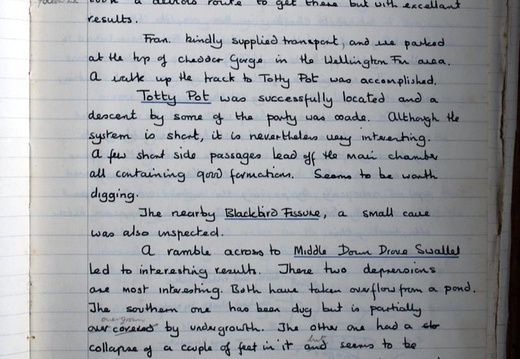 took a devious route to get there but with excellent
results.
Fran. kindly supplied transport, and we parked
at the top of cheddar Gorge in the Wellington Fm area.
A walk up the track to Totty Pot was accomplished.
Totty Pot was successfully located and a
descent by some of the party was made. Although the
system is short, it is nevertheless very interesting.
A few short side passages lead off the main chamber
all containing good formations. Seems to be worth
digging.
The nearby Blackbird Fissure, a small cave
was also inspected.
A ramble across to Middle Down Drove Swallet
led to interesting results. There two depressions
are most interesting. Both have taken overflow from a pond.
The southern one has been dug but is partially
overgrown
over covered by undergrowth. The other one had a
collapse of a couple of feet in it and seems to be